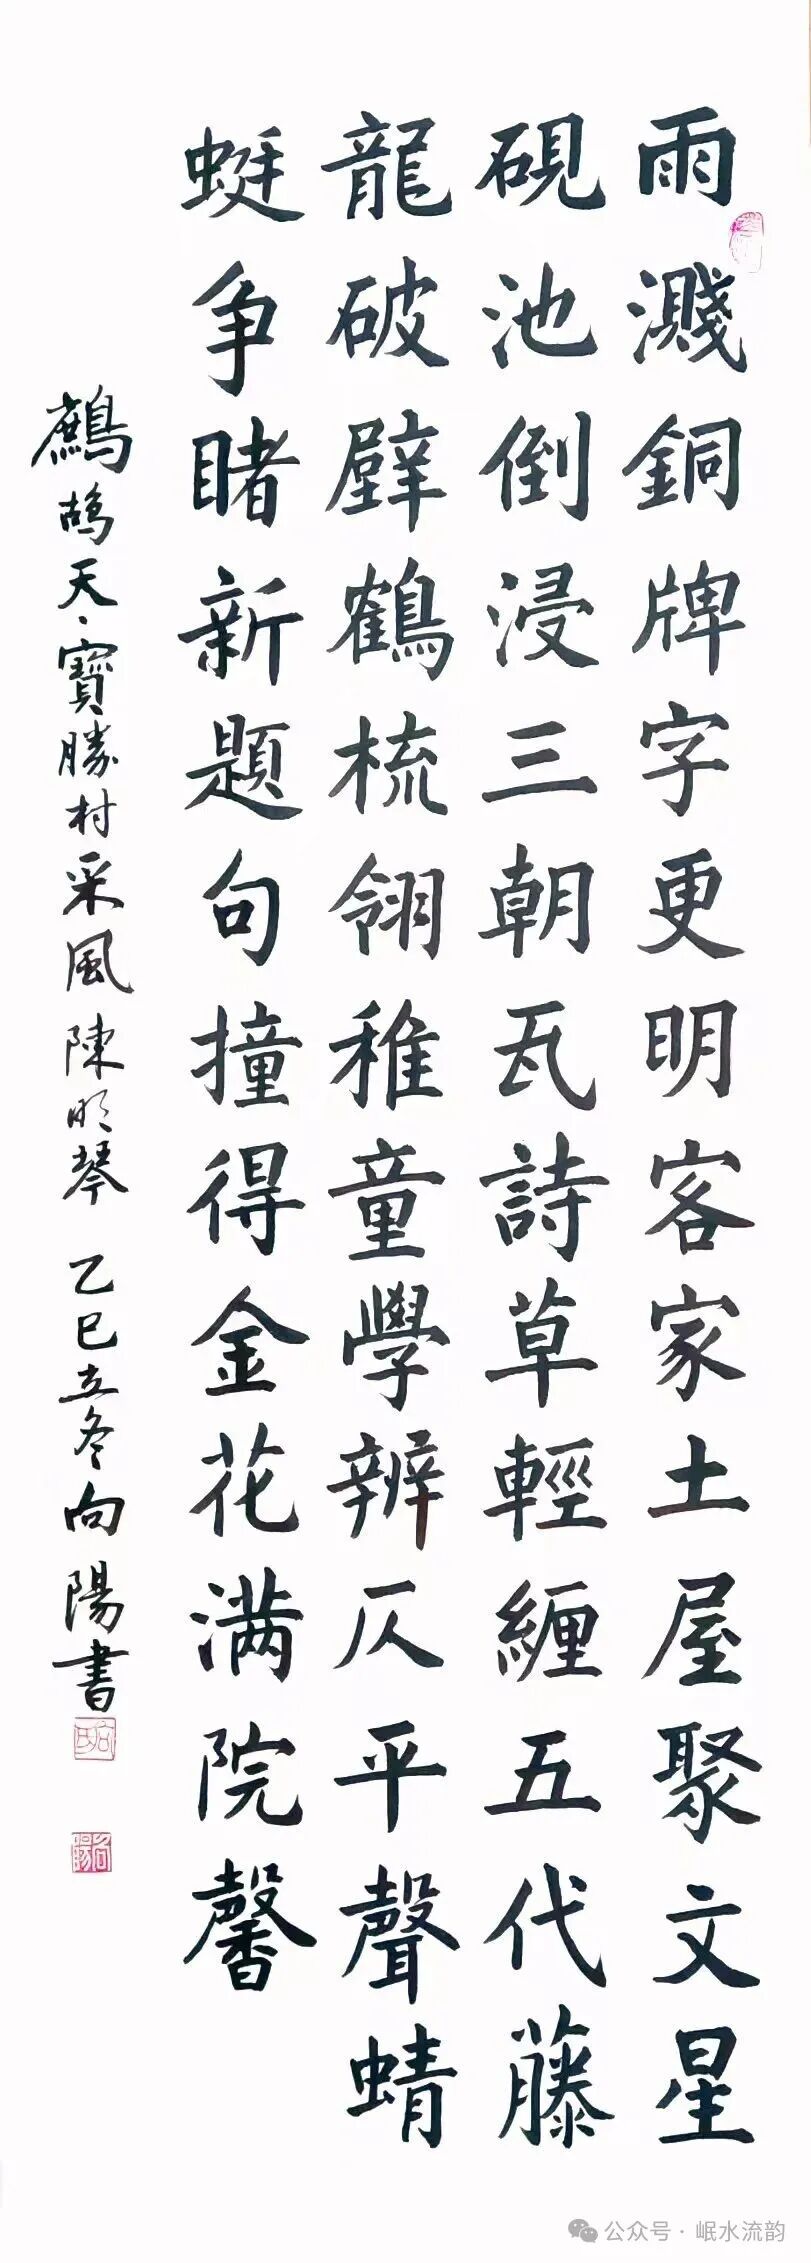 雨濺銅牌字更明客家土屋聚文星
硯池倒浸三朝瓦詩草輕纏五代藤
龍破壁鶴梳翎稚童學辨仄平聲蜻
蜓争睹新題句撞得金花满院馨
鷓鴣天、寶勝村采風陳明琴 乙巳立冬向陽書
公众号·岷水流韵